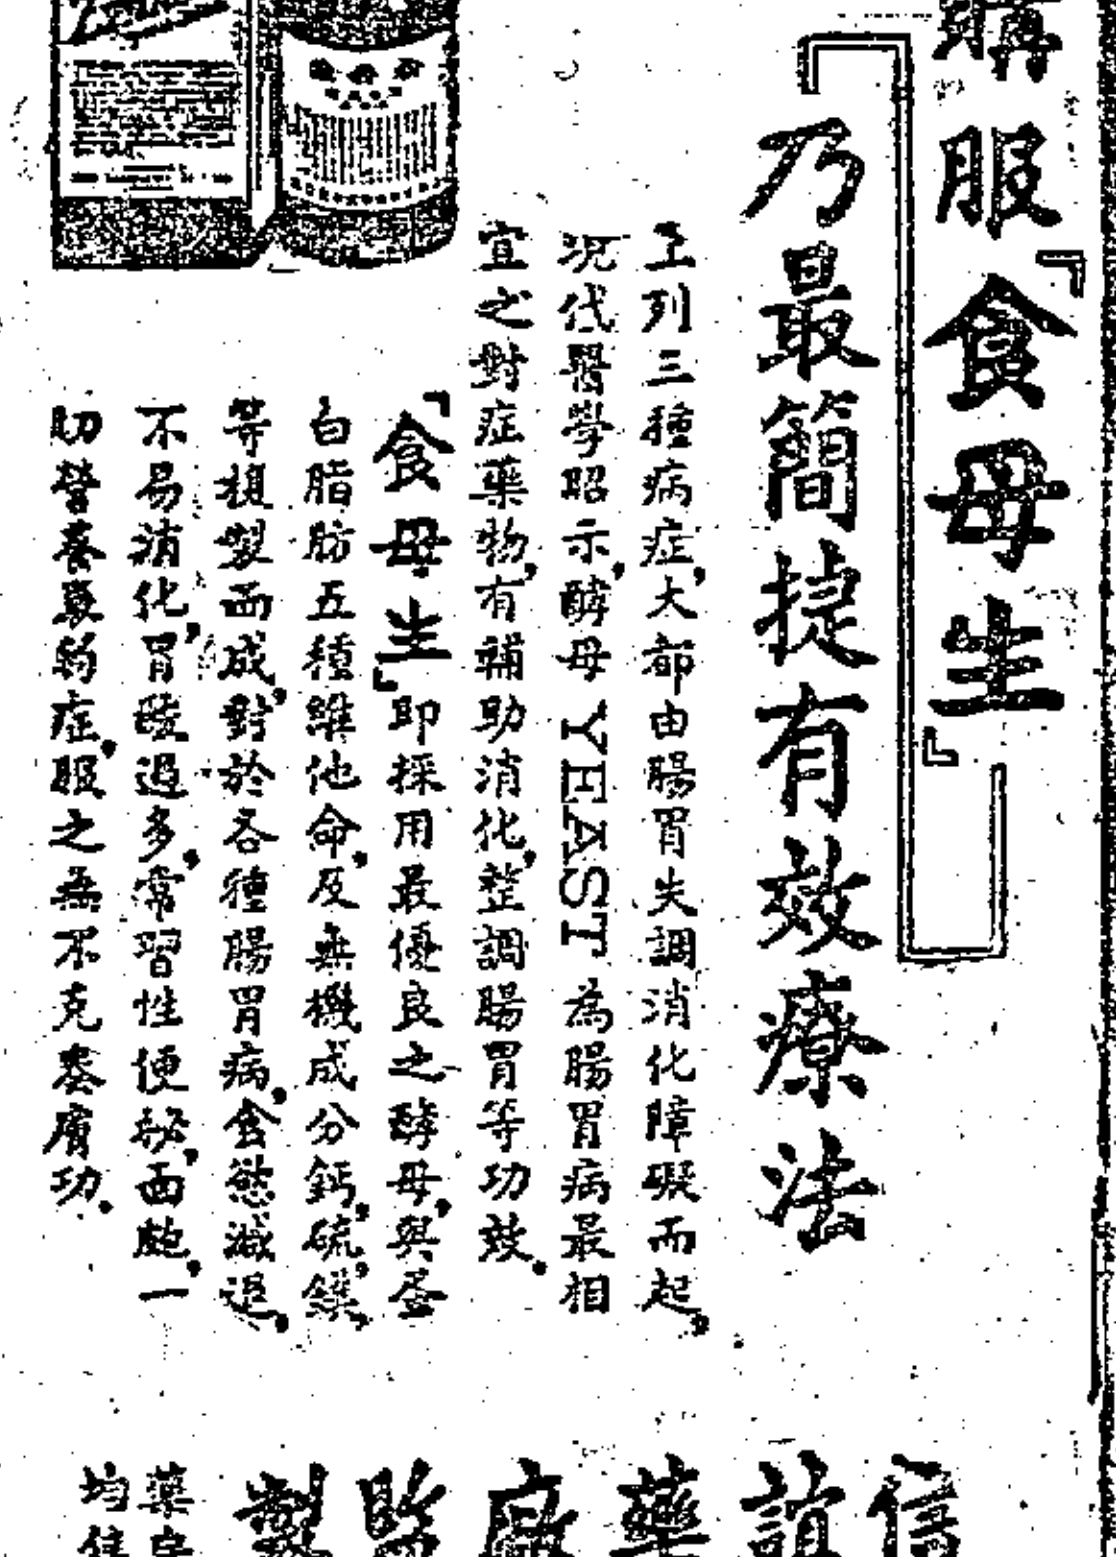 購服「食母生」
乃最簡捷有效療法
上列三種病症，大都由腸胃失調消化障礙而起。
況代醫學昭示，酵母YEAST為腸胃病最相
宜之對症藥物，有輔助消化，整調腸胃等功效。
「食母生」即採用最優良之酵母，與蛋
白脂肪五種維他命，及無機成分鈣，硫，鎂，
等複製而成，對於各種腸胃病，食慾減退，
不易消化，胃酸過多，常習性便秘，面皰，一
切營養衰弱症，服之無不克奏膚功。
信誼藥廠監製
藥房
均售